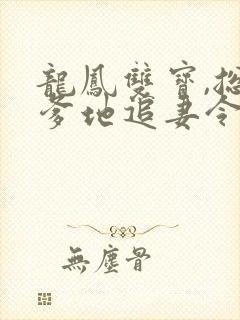 龍鳳雙寶,總
爹地追妻令
無塵骨